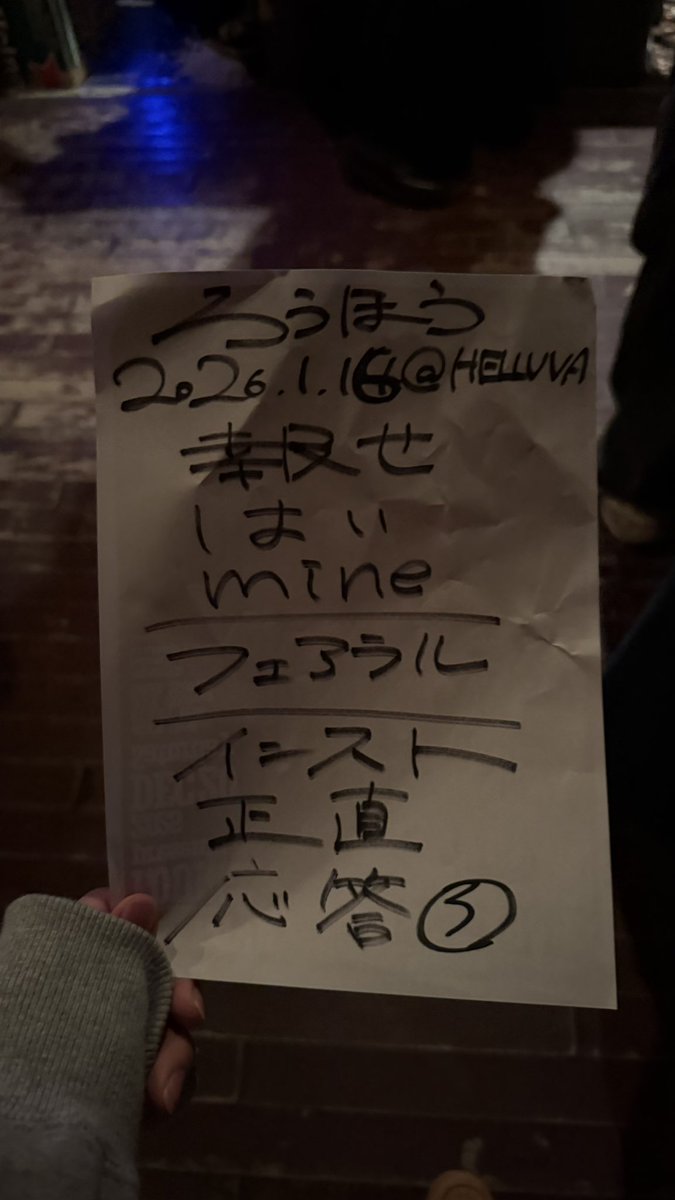 ろうほう
2026.1.16@HELLUVA
報せ
はい
mine
フェアラル
インスト
正直
応答 ③